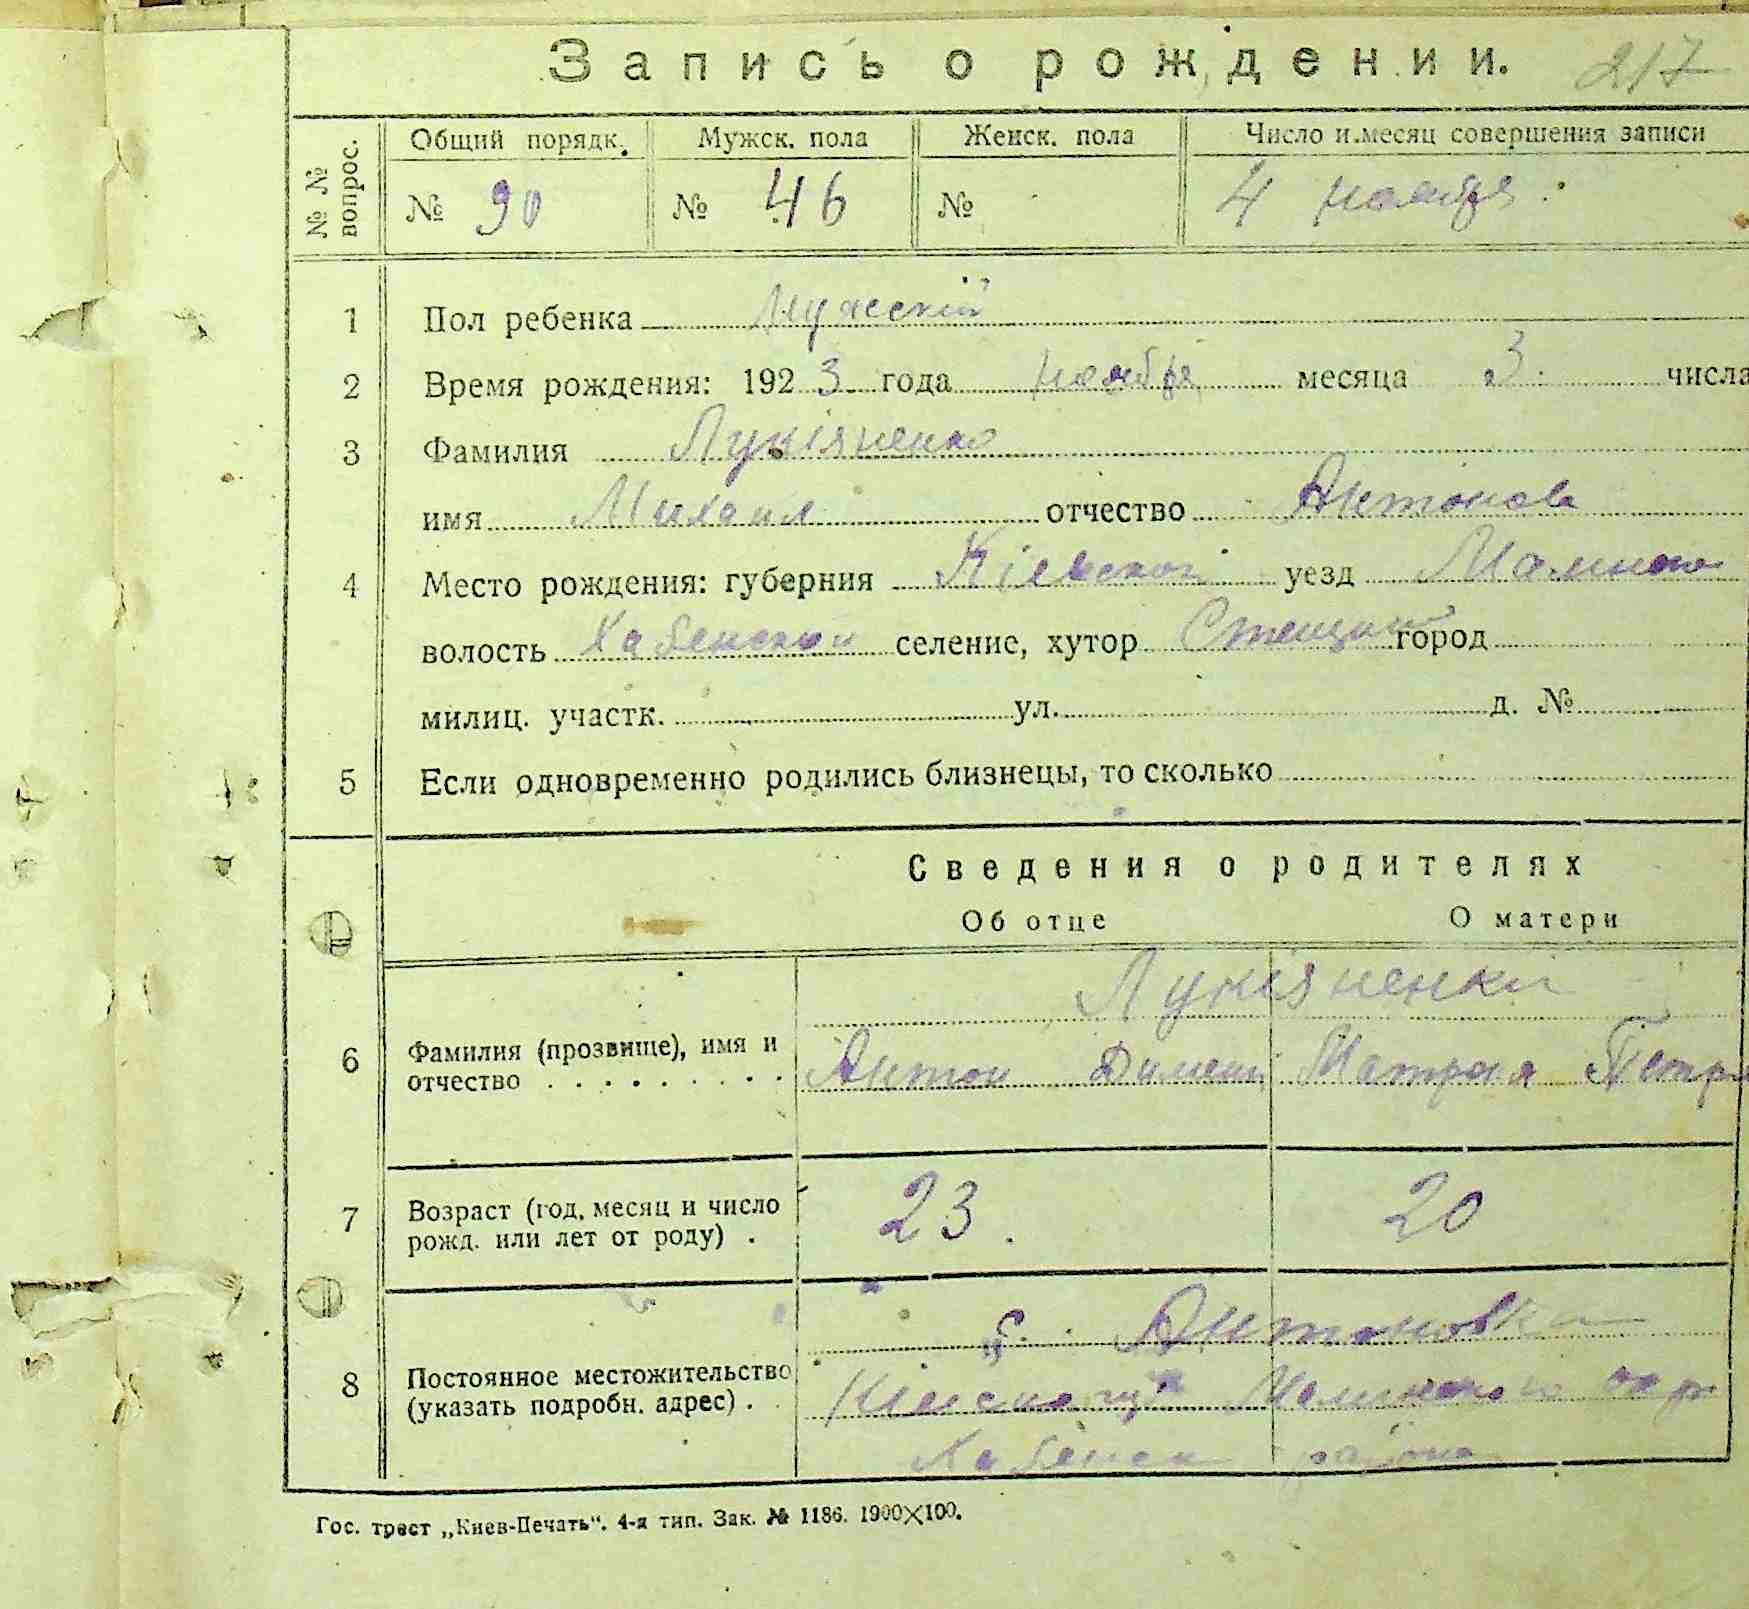 Запись о рождении. 217
№ № вопрос. Общий порядк. Мужск. пола Женск. пола Число и месяц совершения записи
№ 90 № 46 № 4 ноября
1 Пол ребенка Мужескій
2 Время рождения: 1923 года ноября месяца 3 числа
3 Фамилия Лукіяненко
имя Михаил отчество Антонов
4 Место рождения: губерния Кіевской уезд Малинско
волость Хабенской селение, хутор Стещин город
милиц. участк. ул. д. №
5 Если одновременно родились близнецы, то сколько
Сведения о родителях
Об отце О матери
Лукіяненки
6 Фамилия (прозвище), имя и
отчество . . . . . . . . . Антон Димент Матрона Петр
7 Возраст (год, месяц и число
рожд. или лет от роду) . 23. 20
с. Антоновка
8 Постоянное местожительство
(указать подробн. адрес) . Кіевской Малинского окр
Хабенск района
Гос. трест „Киев-Печать“. 4-я тип. Зак. № 1186. 1900×100.